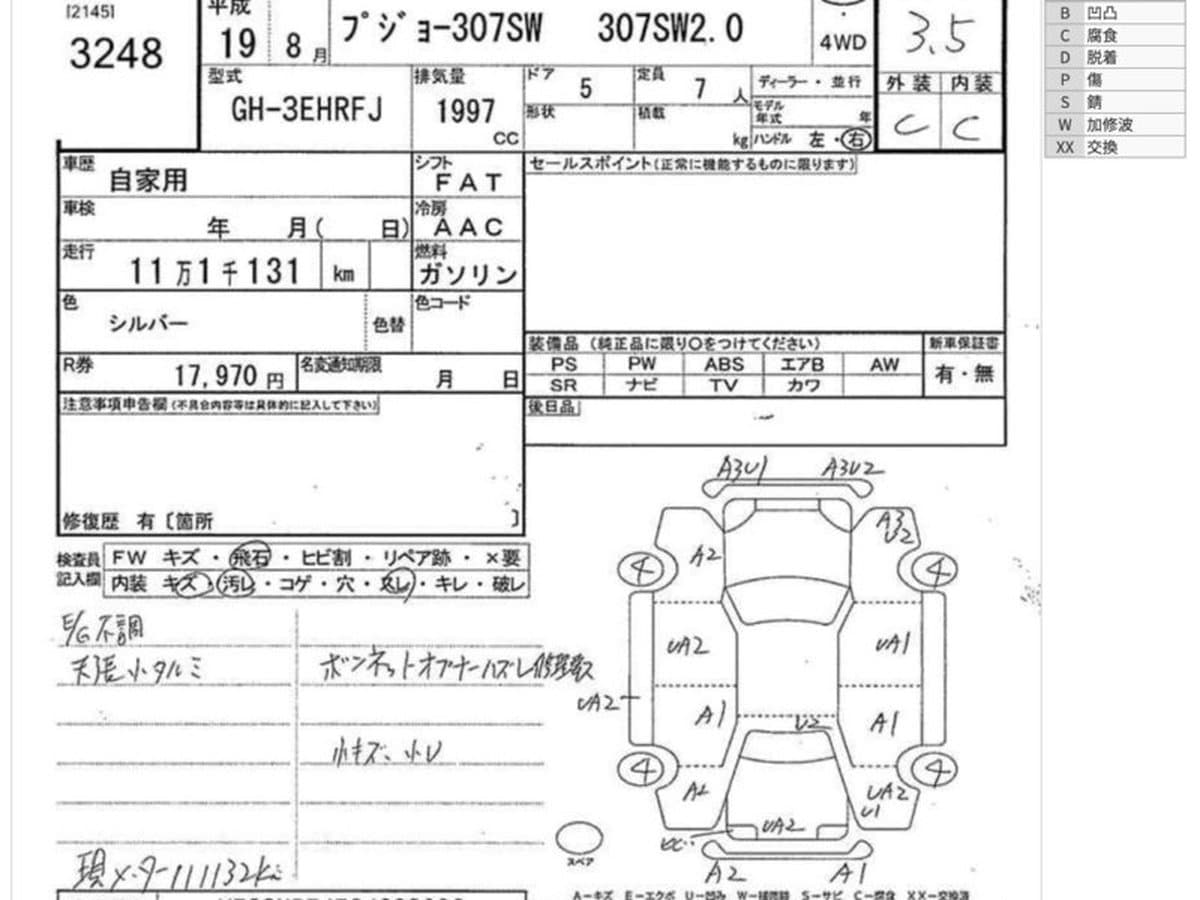 [2145]
3248
平成
19 8月
プジョー307SW 307SW2.0
4WD
3.5
型式
GH-3EHRFJ
排気量
1997
CC
ドア
5
定員
7人
ディーラー・並行
形状
積載
kg
モデル
年式
年
ハンドル 左・右
外装 内装
C C
車歴
自家用
シフト
FAT
セールスポイント(正常に機能するものに限ります)
車検
年 月( 日)
冷房
AAC
走行
11万1千131 km
燃料
ガソリン
色
シルバー
色替
色コード
R券
17,970円
名変通知期限
月 日
装備品 (純正品に限り○をつけてください)
新車保証書
PS PW ABS エアB AW
有・無
SR ナビ TV カワ
後日品
注意事項申告欄(不具合内容等は具体的に記入して下さい)
修復歴 有〔箇所 〕
検査員
記入欄
FW キズ・飛石・ヒビ割・リペア跡・×要
内装 キズ・汚レ・コゲ・穴・スレ・キレ・破レ
E/G不調
天張小タルミ
ボンネットオープナーハズレ修理要
小キズ、小U
現メーター111132km
A3U1 A3U2
A2
A3
U2
4 4
UA2 UA1
UA2
A1 A1
U2
4 4
A2
UA2
U1
UA2
スペア
A2 A1
A-キズ E-エクボ U-凹み W-補修跡 S-サビ C-腐食 XX-交換済
B 凹凸
C 腐食
D 脱着
P 傷
S 錆
W 加修波
XX 交換